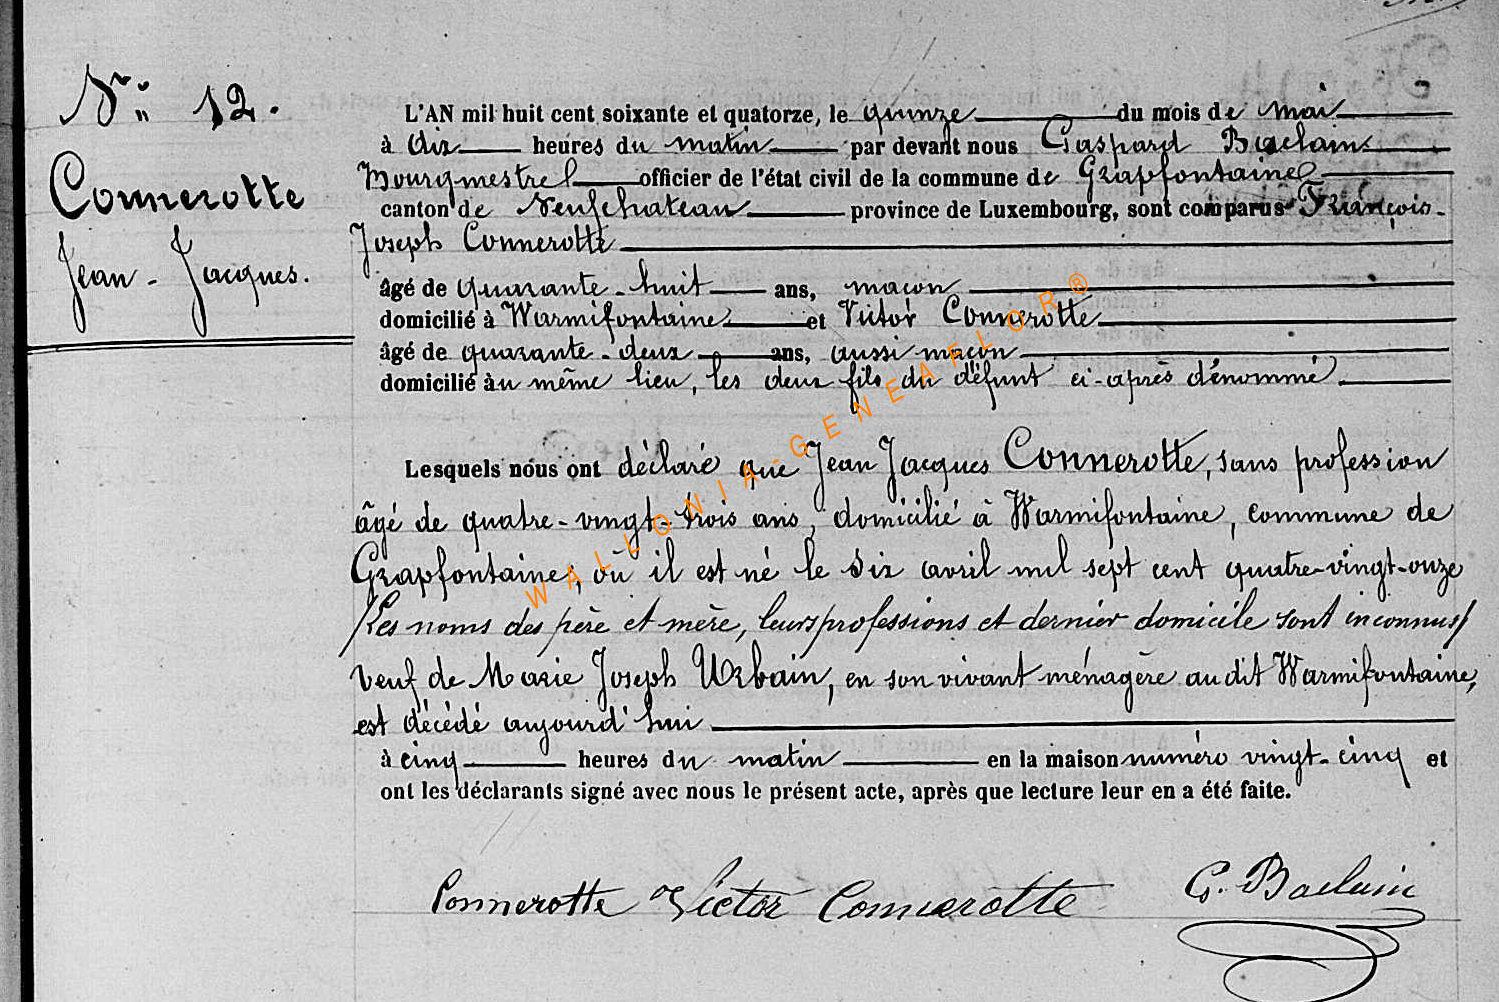 N° 12.
Connerotte
Jean-Jacques.
L'AN mil huit cent soixante et quatorze, le quinze du mois de mai
à dix heures du matin par devant nous Gaspard Baelain
Bourgmestre officier de l'état civil de la commune de Grapfontaine
canton de Neufchateau province de Luxembourg, sont comparus François-
Joseph Connerotte
âgé de quarante-huit ans, maçon
domicilié à Warmifontaine et Victor Connerotte
âgé de quarante-deux ans, aussi maçon
domicilié au même lieu, les deux fils du défunt ci-après dénommé
Lesquels nous ont déclaré que Jean Jacques Connerotte, sans profession
âgé de quatre-vingt-trois ans, domicilié à Warmifontaine, commune de
Grapfontaine, où il est né le six avril mil sept cent quatre-vingt-onze
/Les noms des père et mère, leurs professions et dernier domicile sont inconnus/
veuf de Marie Joseph Urbain, en son vivant ménagère au dit Warmifontaine,
est décédé aujourd'hui
à cinq heures du matin en la maison numéro vingt-cinq et
ont les déclarants signé avec nous le présent acte, après que lecture leur en a été faite.
Connerotte Victor Connerotte G. Baelain
WALLONIA-GENEAFLOR®